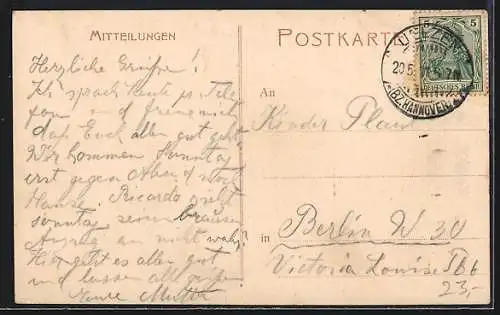 MITTEILUNGEN
Herzliche Grüße!
Ich sprach heute p. Tele
fon und freue mich
daß Euch allen gut geht
Wir kommen Sonntag
erst gegen Abend nach
Hause. Ricardo zieht
sonntag seinen braunen
Anzug an nicht wahr?
Hier geht es allen gut
und lassen alle grüßen
Eure Mutter
POSTKARTE
5 5
DEUTSCHES REICH
UELZEN
20.5.
(BZ. HANNOVER)
An
Kinder
in Berlin W 30
Victoria Louise Pl 6
23,-